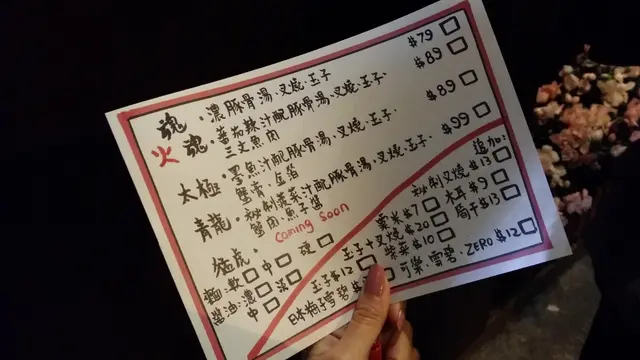 魂・濃豚骨湯、叉燒、玉子 $79
火魂・蕃茄辣汁配豚骨湯、叉燒、玉子、 $89
三文魚肉
太極・墨魚汁配豚骨湯、叉燒、玉子、 $89
蟹膏、金箔
青龍・秘制菠菜汁配豚骨湯、叉燒、玉子、 $99
蟹肉、魚子醬
猛虎・coming soon
麵:軟 中 硬
醬油:濃 淡
中
追加:
秘制叉燒 $13
粟米 $7 木耳 $9
玉子+叉燒 $20
玉子 $12 紫菜 $10
日本柚子雪碧 $
可樂、雪碧、ZERO $12